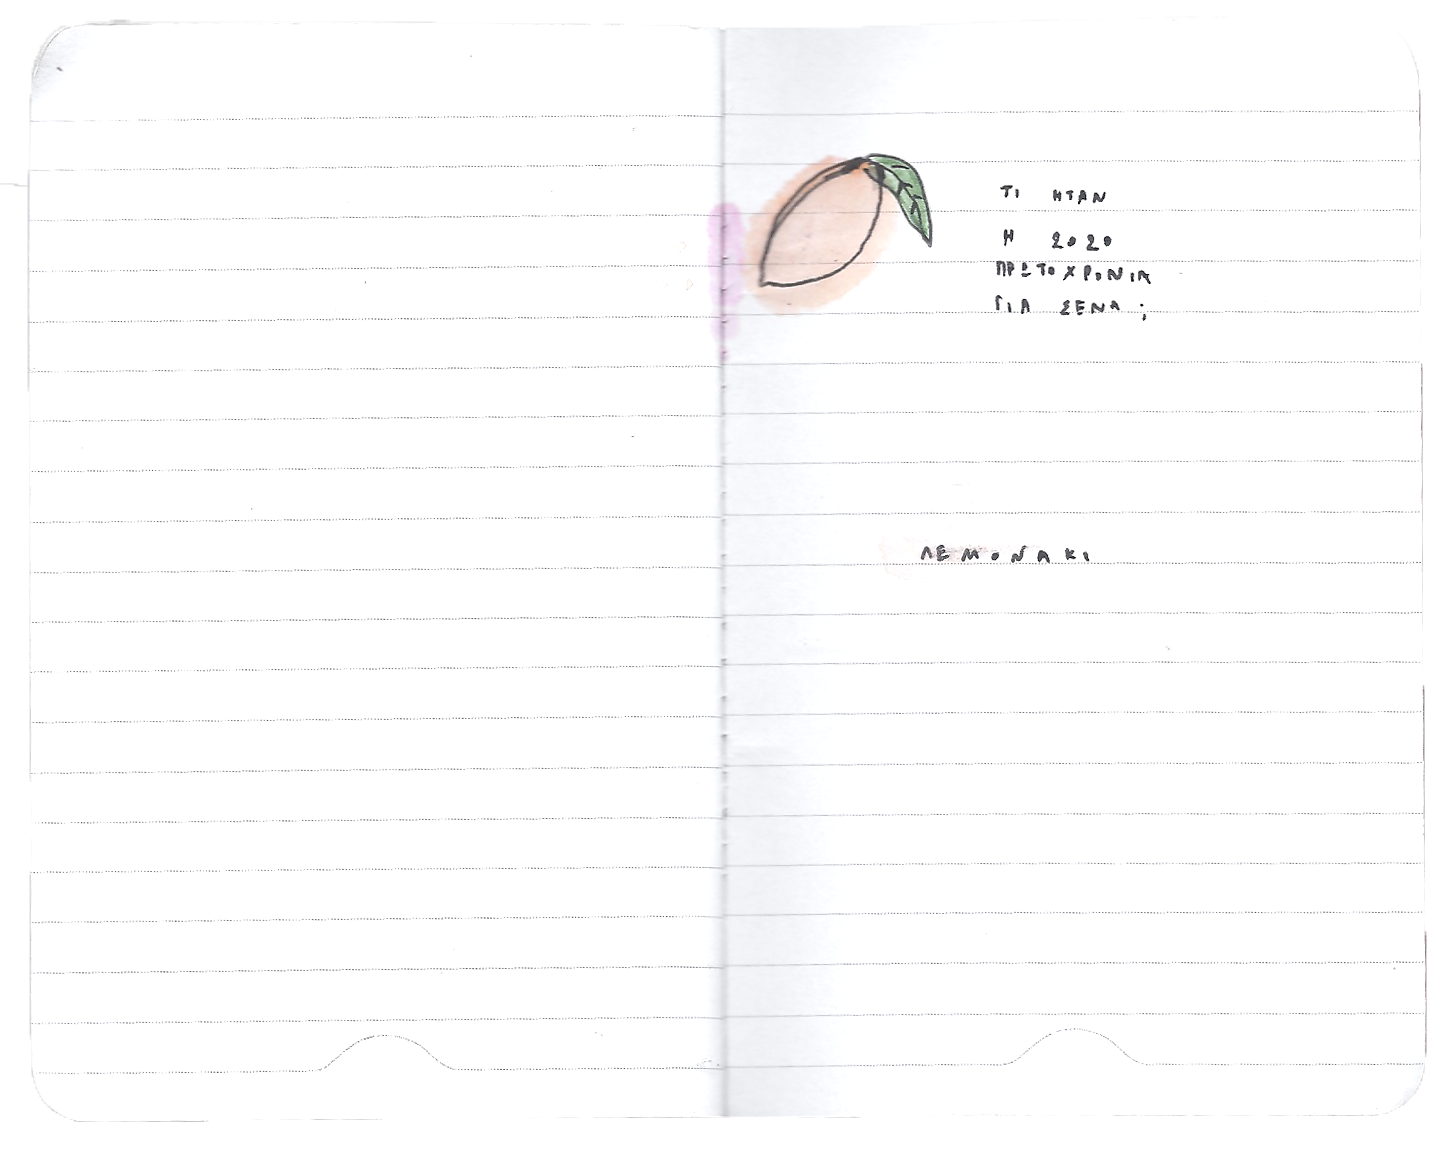 ΤΙ ΗΤΑΝ
Η 2020
ΠΡΩΤΟΧΡΟΝΙΑ
ΓΙΑ ΣΕΝΑ ;
ΛΕΜΟΝΑΚΙ